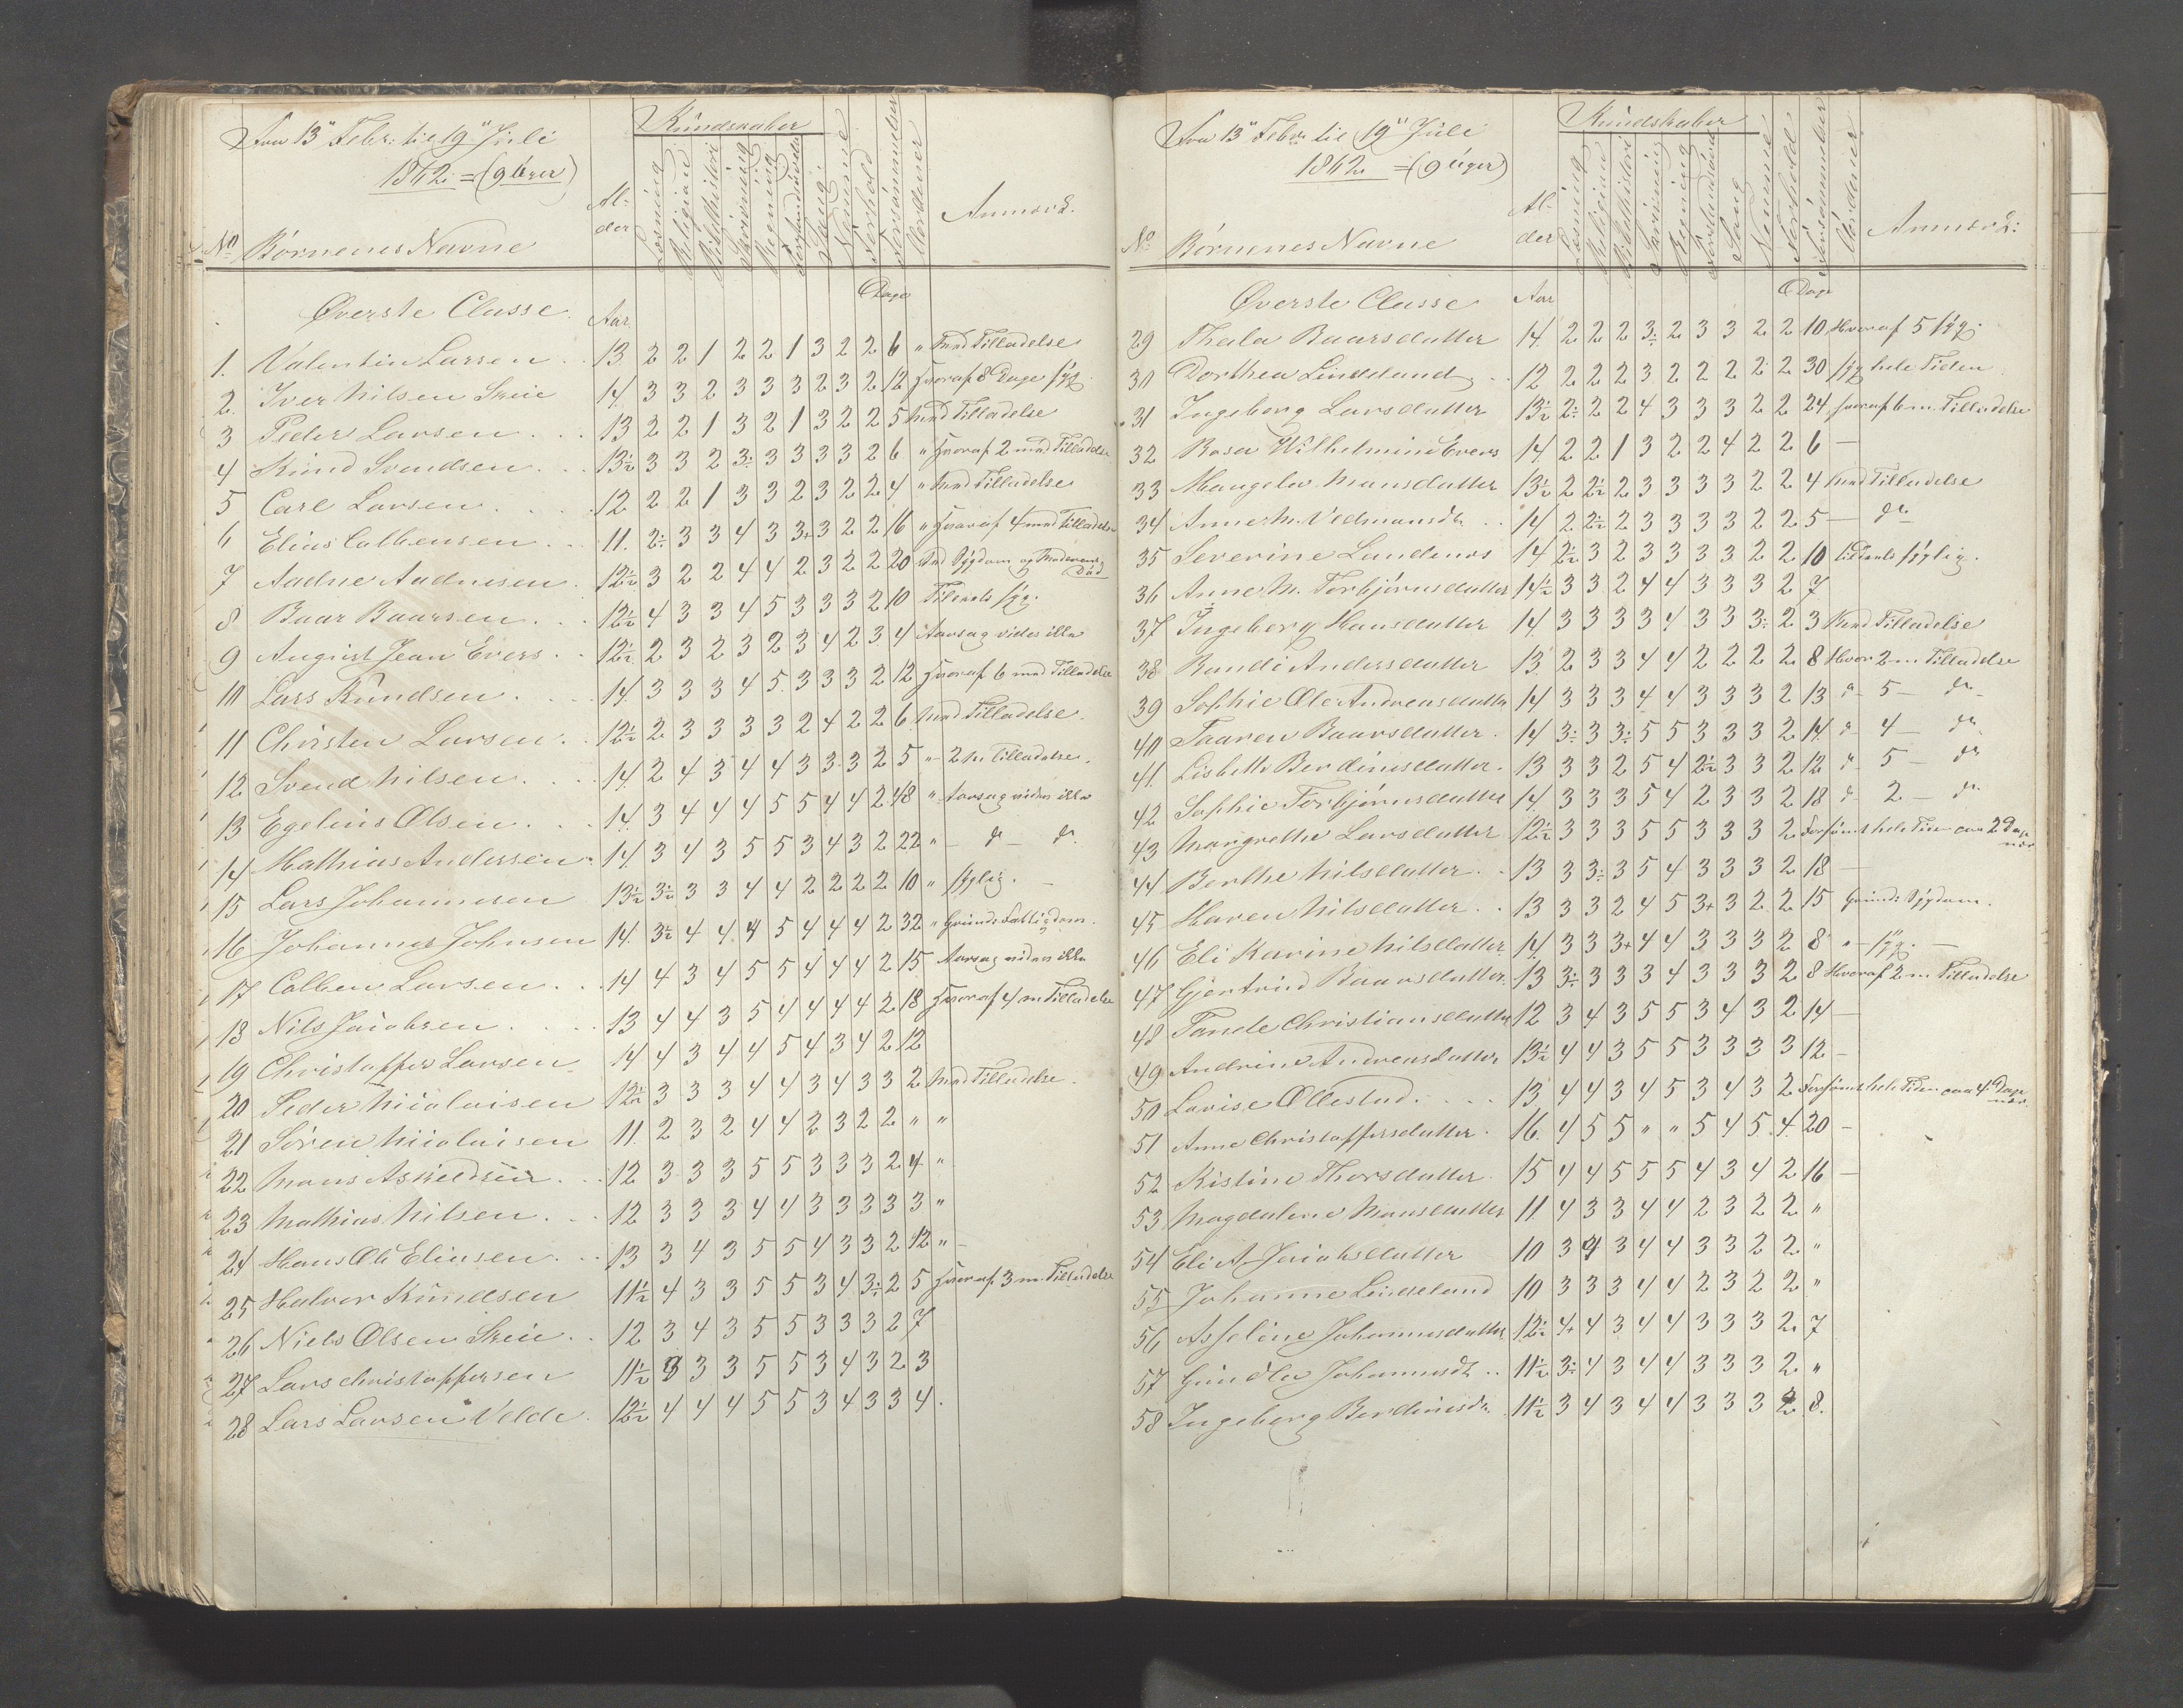 Fra 13" Febr: til 19" Juli
1862 = (9 Uger)
Kundskaber
No Børnenes Navne Alder Læsning Religion Bibelhistori Skrivning Regning Forstandsøvelse Sang Nemme Forhold Forsømmelser Anmærk.
Øverste Classe. Aar. Dage
1. Valentin Larsen 13 2 2 1 2 2 1 3 2 2 6 " Med Tilladelse
2. Iver Nilsen Skeie 14 3 3 2 3 3 3 2 3 2 12 hvoraf 8 Dage syg
3 Peder Larsen 13 2 2 1 3 2 1 3 2 2 5 Med Tilladelse
4 Knud Svendsen 13½ 3 3 2 3÷ 3 3 3 3 2 6 " hvoraf 2 med Tilladelse
5 Carl Larsen 12 2 2 1 3 3 2 3 2 2 4 " Med Tilladelse
6 Elias Colbensen 11. 2÷ 3 3 4 3 3+ 3 2 2 16 " hvoraf 4 med Tilladelse
7 Aadne Aadnesen 12½ 3 2 2 4 4 2 3 2 2 20 Ved Sygdom og Moderens Død
8 Baar Baarsen 12½ 4 3 3 4 5 3 3 3 2 10 Tildeels syg.
9 August Jean Evers 12½ 2 3 2 3 2 3 4 2 3 4 Aarsag vides ikke
10 Lars Knudsen 14. 3 3 3 4 5 3 3 3 2 12 hvoraf 6 med Tilladelse
11 Christen Larsen 12½ 2 3 3 3 3 2 4 2 2 6 Med Tilladelse.
12 Svend Nilsen 14. 2 4 3 4 4 3 3 3 2 5 " 2 m Tilladelse.
13 Egelius Olsen 14. 3 4 4 4 5 5 4 4 2 48 " Aarsag vides ikke
14 Mathias Andersen 14. 3 4 3 5 5 3 4 3 2 22 " – do – do.
15 Lars Johannesen 13½ 3½ 3 3 4 4 2 2 2 2 10 " sygelig.
16 Johannes Johnsen 14. 3½ 4 4 4 5 4 4 4 2 32 " Grundet Fattigdom.
17 Colben Larsen 14 4 3 4 5 5 4 4 4 2 15 Aarsag vides ikke
18 Nils Jacobsen 13 4 4 3 5 4 4 4 4 2 18 hvoraf 4 m Tilladelse
19 Christopher Larsen 14 4 3 4 4 5 4 3 4 2 12
20 Peder Nicolaisen 12½ 3 3 3 4 4 3 4 3 3 2 Med Tilladelse.
21 Søren Nicolaisen 11. 2 3 2 4 4 2 3 2 2 " "
22 Mons Askeldsen 12 3 3 3 5 5 3 3 3 2 4 "
23 Mathias Nilsen 12 3 3 3 4 4 3 3 3 3 3 "
24 Hans Ole Eliasen 13 3 4 3 5 5 4 3 3 2 12 " –
25 Halvor Knudsen 11½ 4 3 3 5 5 3 4 3÷ 2 5 hvoraf 3 m. Tilladelse
26 Niels Olsen Skeie 12 3 4 3 5 5 3 3 3 2 7
27 Lars Christophersen 11½ 3 3 3 5 5 3 4 3 2 3
28 Lars Larsen Velde 12½ 4 4 4 5 5 3 4 3 3 4.
Fra 13" Febr: til 19" Juli
1862 = (9 Uger)
Kundskaber
No. Børnenes Navne Alder Læsning Religion Bibelhistori Skrivning Regning Forstandsøvelse Sang Nemme Forhold Forsømmelser Anmærk:
Øverste Classe Aar Dage
29 Thala Baarsdatter 14. 2 2 2 3÷ 2 3 3 2 2 10 Hvoraf 5 syg.
30 Dorthea Lindeland 12 2 2 2 3 2 2 2 2 2 30 syg hele Tiden
31 Ingeborg Larsdatter 13½ 2÷ 2 2 4 3 3 3 2 2 24 hvoraf 6 m. Tilladelse
32 Rosa Wilhelmine Evers 14 2 2 1 3 2 2 4 2 2 6 –
33 Mangela Monsdatter 13½ 2 2½ 2 3 3 3 3 2 2 4 Med Tilladelse
34 Anne M. Vedmansdt. 14 2 2½ 2 3 3 3 3 2 2 5 – do
35 Severine Landenos 14 2½ 3 2 3 3 3 3 2 2 10 tildeels sygelig.
36 Anne M. Torbjørnsdatter 14½ 3 3 2 4 4 3 3 3 2 7
37 Ingeborg Hansdatter 14. 3 3 3 3 4 3 3 3÷ 2 3 Med Tilladelse
38 Randi Andersdatter 13. 2 3 3 4 4 2 2 2 2 8 Hvor 2 m Tilladelse
39 Sophie Ole Andreasdatter 14 3 3 3 4 4 3 3 3 2 13 do – 5 – do –
40 Taaren Baarsdatter 14 3÷ 3 3÷ 5 5 3 3 3 2 14. do – 4 – do
41. Lisbeth Berdinesdatter 13 3 3 2 5 4 2½ 3 3 2 12 do – 5 – do
42 Sophie Torbjørnsdatter 14. 3 3 3 5 4 2 3 3 2 18 do 2 – do
43 Mangrethe Larsdatter 12½ 3 3 3 5 5 3 3 3 2 Forsømt hele Tiden paa 2 Dage nær
44 Berthe Nilsdatter 13 3 3÷ 3 5 4 3 3 3 2 18 –
45 Karen Nilsdatter 13 3 3 2 4 5 3+ 3 2 2 15 Grundet Sygdom.
46 Eli Karine Nilsdatter 14. 3 3 3+ 4 4 3 3 3 2 8 " – syg. –
47 Gjertrud Baarsdatter 13 3÷ 3 3 3 4 3 3 3 2 8 Hvoraf 2 m. Tilladelse
48 Tande Christiansdatter 12 3 4 3 5 5 3 4 3 2 14 –
49 Andrine Andreasdatter 13½ 4 4 3 5 5 3 3 3 3 12 –
50 Lovise Ollestad 13 4 4 3 4 5 3 4 3 2 Forsømt hele Tiden paa 4 Dage nær
51 Anne Christophersdatter 16. 4 5 5 " " 5 4 5 4 20 –
52 Kistine Thorsdatter 15 4 4 5 5 5 4 3 4 2 16 –
53 Magdalene Monsdatter 11. 4 3 3 4 4 2 3 2 2 "
54 Eli A. Jacobsdatter 10 3 4 3 4 4 3 3 2 2 "
55 Johanne Lindeland 10 3 3 3 4 4 2 3 2 2 "
56 Asseline Johannesdatter 12½ 4+ 4 3 4 4 3 3 3 2. 7
57 Gundla Johannesdt 11½ 3÷ 4 3 4 4 3 3 3 2 "
58 Ingeborg Berdinesdr. 11½ 3 4 3 4 4 3 3 3 2 8.